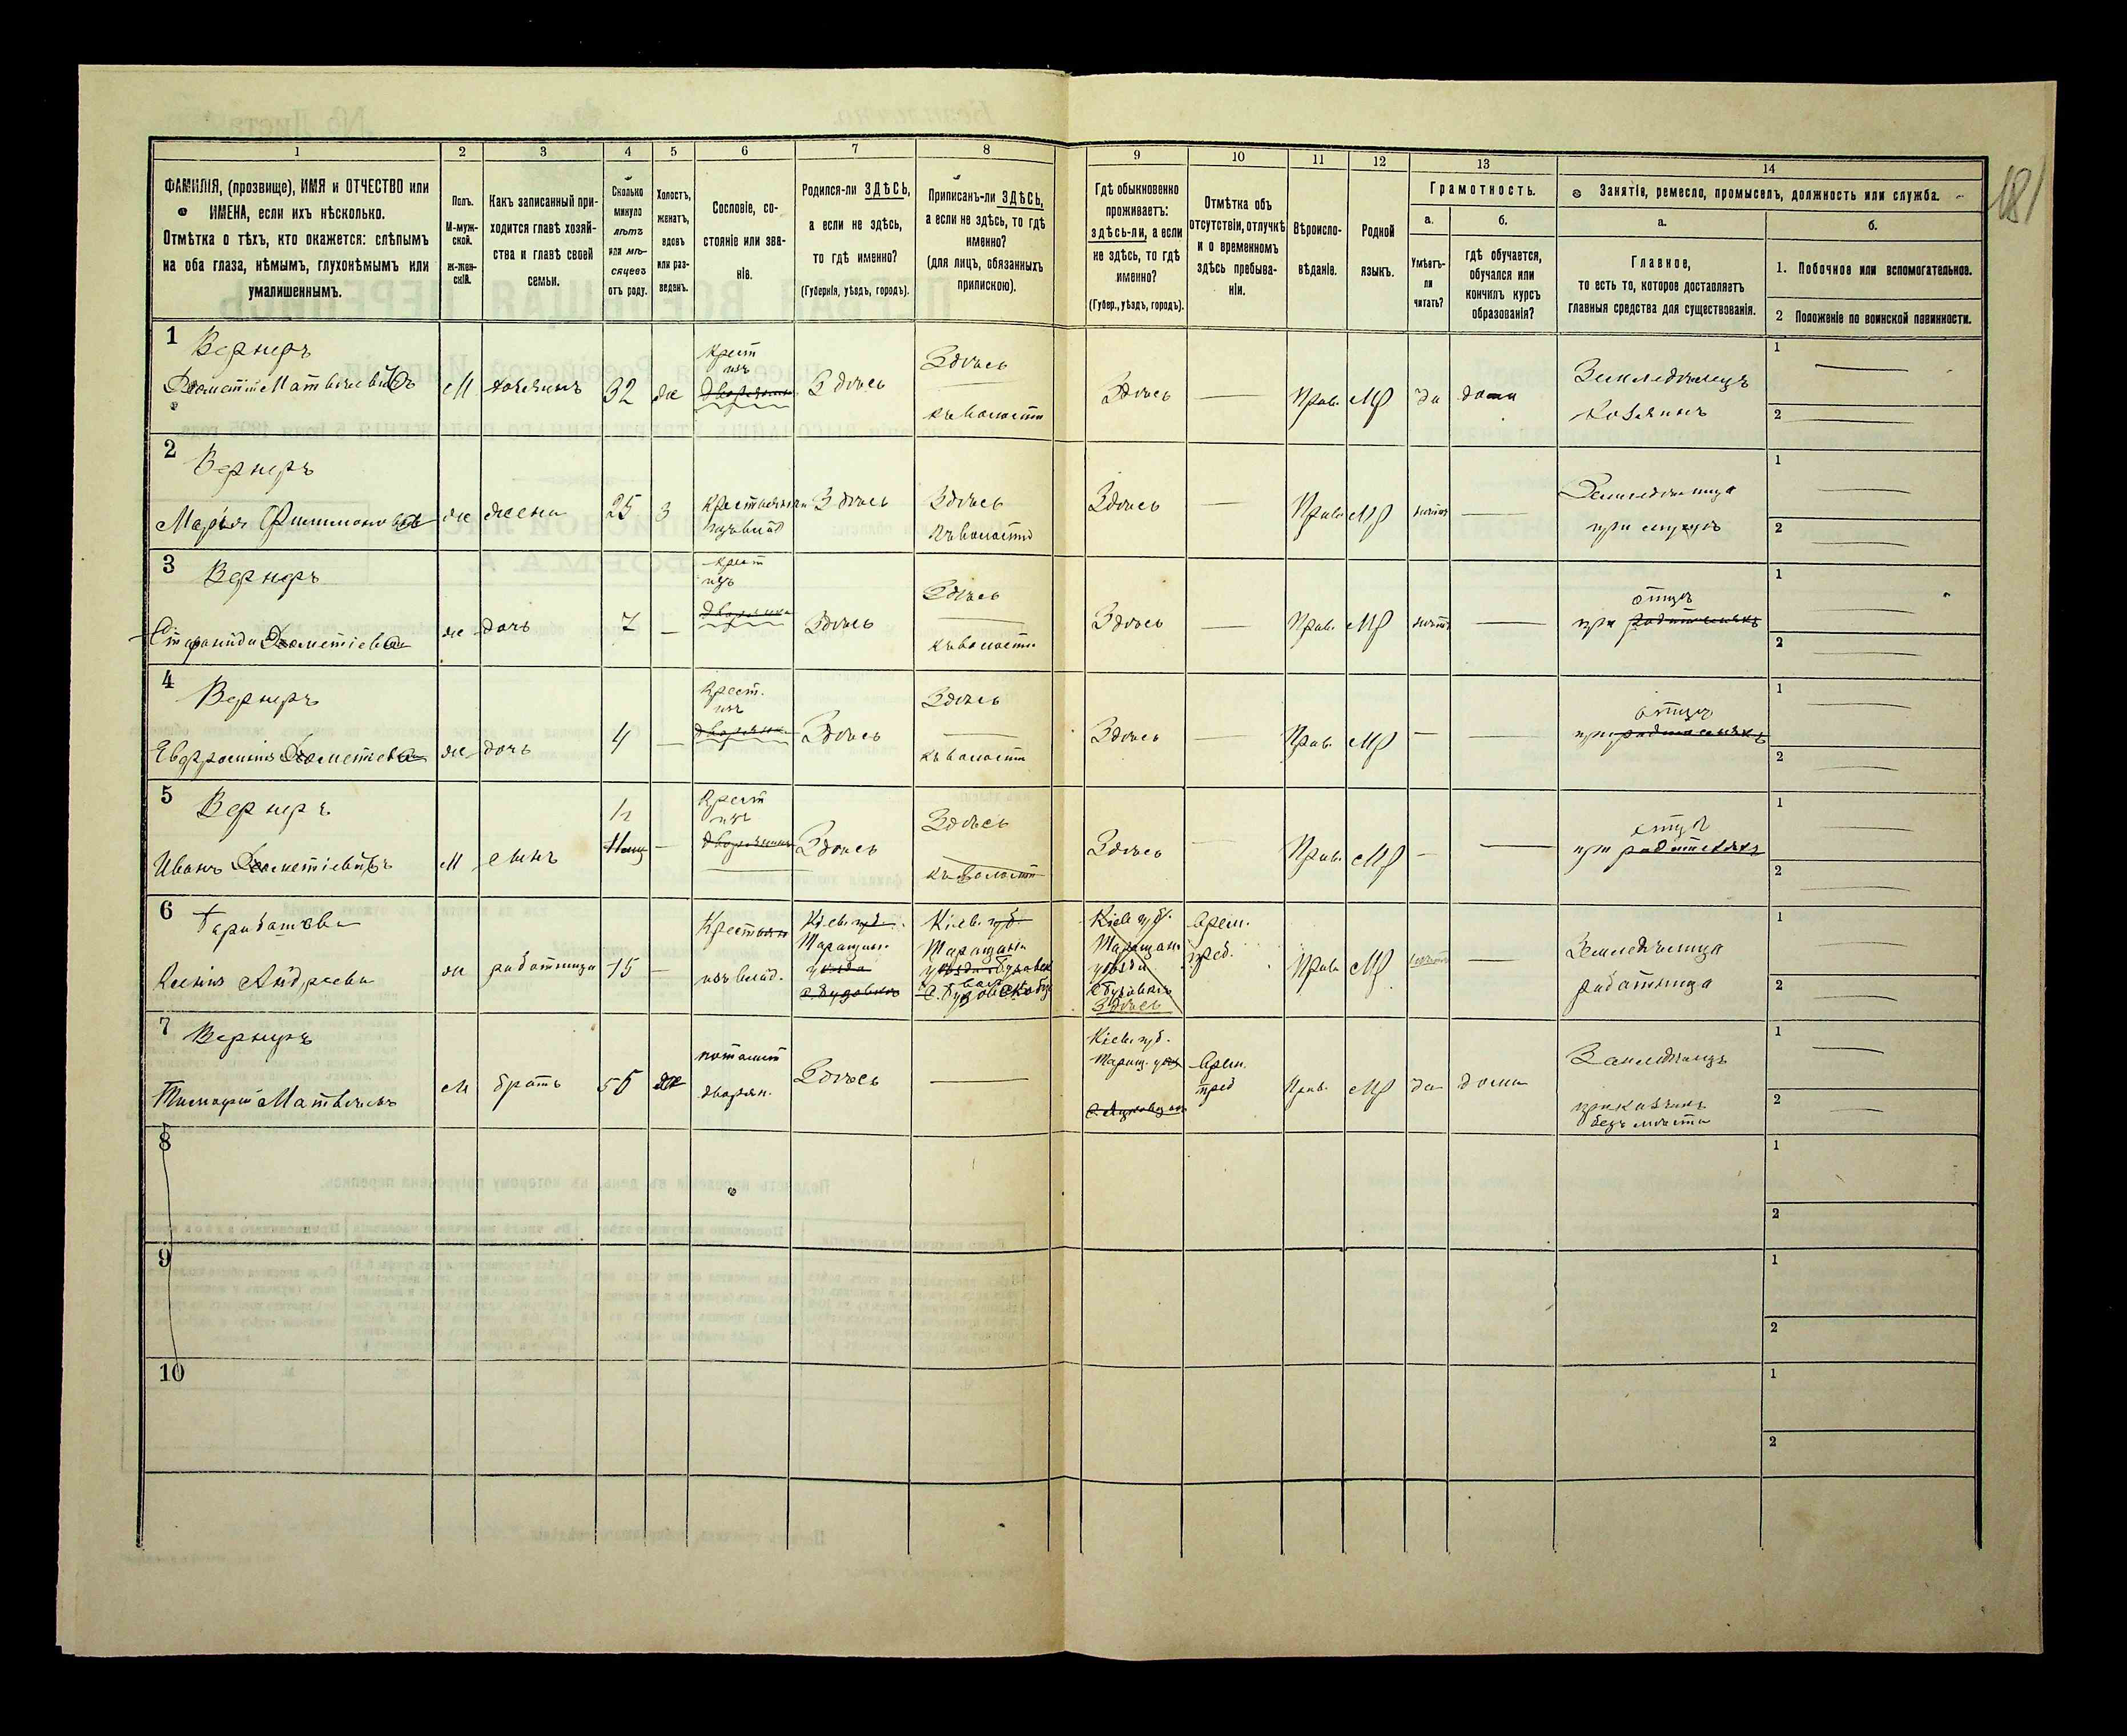 181
1 2 3 4 5 6 7 8 9 10 11 12 13 14
ФАМИЛІЯ, (прозвище), ИМЯ и ОТЧЕСТВО или
ИМЕНА, если ихъ нѣсколько.
Отмѣтка о тѣхъ, кто окажется: слѣпымъ
на оба глаза, нѣмымъ, глухонѣмымъ или
умалишеннымъ.
Полъ.
М-муж-
ской.
ж-жен-
скій.
Какъ записанный при-
ходится главѣ хозяй-
ства и главѣ своей
семьи.
Сколько
минуло
лѣтъ
или мѣ-
сяцевъ
отъ роду.
Холостъ,
женатъ,
вдовъ
или раз-
веденъ.
Сословіе, со-
стояніе или зва-
ніе.
Родился-ли ЗДѢСЬ,
а если не здѣсь,
то гдѣ именно?
(Губернія, уѣздъ, городъ).
Приписанъ-ли ЗДѢСЬ,
а если не здѣсь, то гдѣ
именно?
(для лицъ, обязанныхъ
припискою).
Гдѣ обыкновенно
проживаетъ:
здѣсь-ли, а если
не здѣсь, то гдѣ
именно?
(Губер., уѣздъ, городъ).
Отмѣтка объ
отсутствіи, отлучкѣ
и о временномъ
здѣсь пребыва-
ніи.
Вѣроиспо-
вѣданіе.
Родной
языкъ.
Грамотность.
а.
Умѣетъ-
ли
читать?
б.
гдѣ обучается,
обучался или
кончилъ курсъ
образованія?
Занятіе, ремесло, промыселъ, должность или служба.
а.
Главное,
то есть то, которое доставляетъ
главныя средства для существованія.
б.
1. Побочное или вспомогательное.
2 Положеніе по воинской повинности.
1 Вернеръ
Матвѣевичъ
М хозяинъ 32 ж
Крест
изъ
дворянъ
Здѣсь
Здѣсь
къ волости
Здѣсь
Прав. МР да дома
Земледѣлецъ
хозяинъ
1
2
2 Вернеръ
Марья Филимоновна
ж жена 25 З
Крестьянка
изъ влад
Здѣсь
Здѣсь
къ волости
Здѣсь
Прав. МР нѣтъ
Земледѣлица
при мужѣ
1
2
3 Вернеръ
Стефанида
ж дочь 7
Крест
изъ
дворянка
Здѣсь
Здѣсь
къ волости
Здѣсь
Прав. МР нѣтъ
отцѣ
при родителяхъ
1
2
4 Вернеръ
Евфросинія
ж дочь 4
Крест.
изъ
дворянка
Здѣсь
Здѣсь
къ волости
Здѣсь
Прав. МР
отцѣ
при родителяхъ
1
2
5 Вернеръ
Иванъ
М сынъ
Крест
изъ
дворянинъ
Здѣсь
Здѣсь
къ волости
Здѣсь
Прав. МР
отцѣ
при родителяхъ
1
2
6
Ксенія Андреева
ж работница 15
Крестьян
изъ влад.
Кіев. губ.
Таращан.
уѣзда
Кіев. губ.
Таращан.
уѣзда
Кіев губ.
Таращан.
уѣзда
Здѣсь
врем.
преб.
Прав МР нѣтъ
Земледѣлица
работница
1
2
7 Вернеръ
Тимофей Матвѣевъ
М братъ 55 ж
потомст
дворян.
Здѣсь
Кіев. губ.
Таращ. уѣз
Врем.
преб
Прав. МР да дома
Земледѣлецъ
прикащикъ
безъ мѣста
1
2
8
1
2
9
1
2
10
1
2